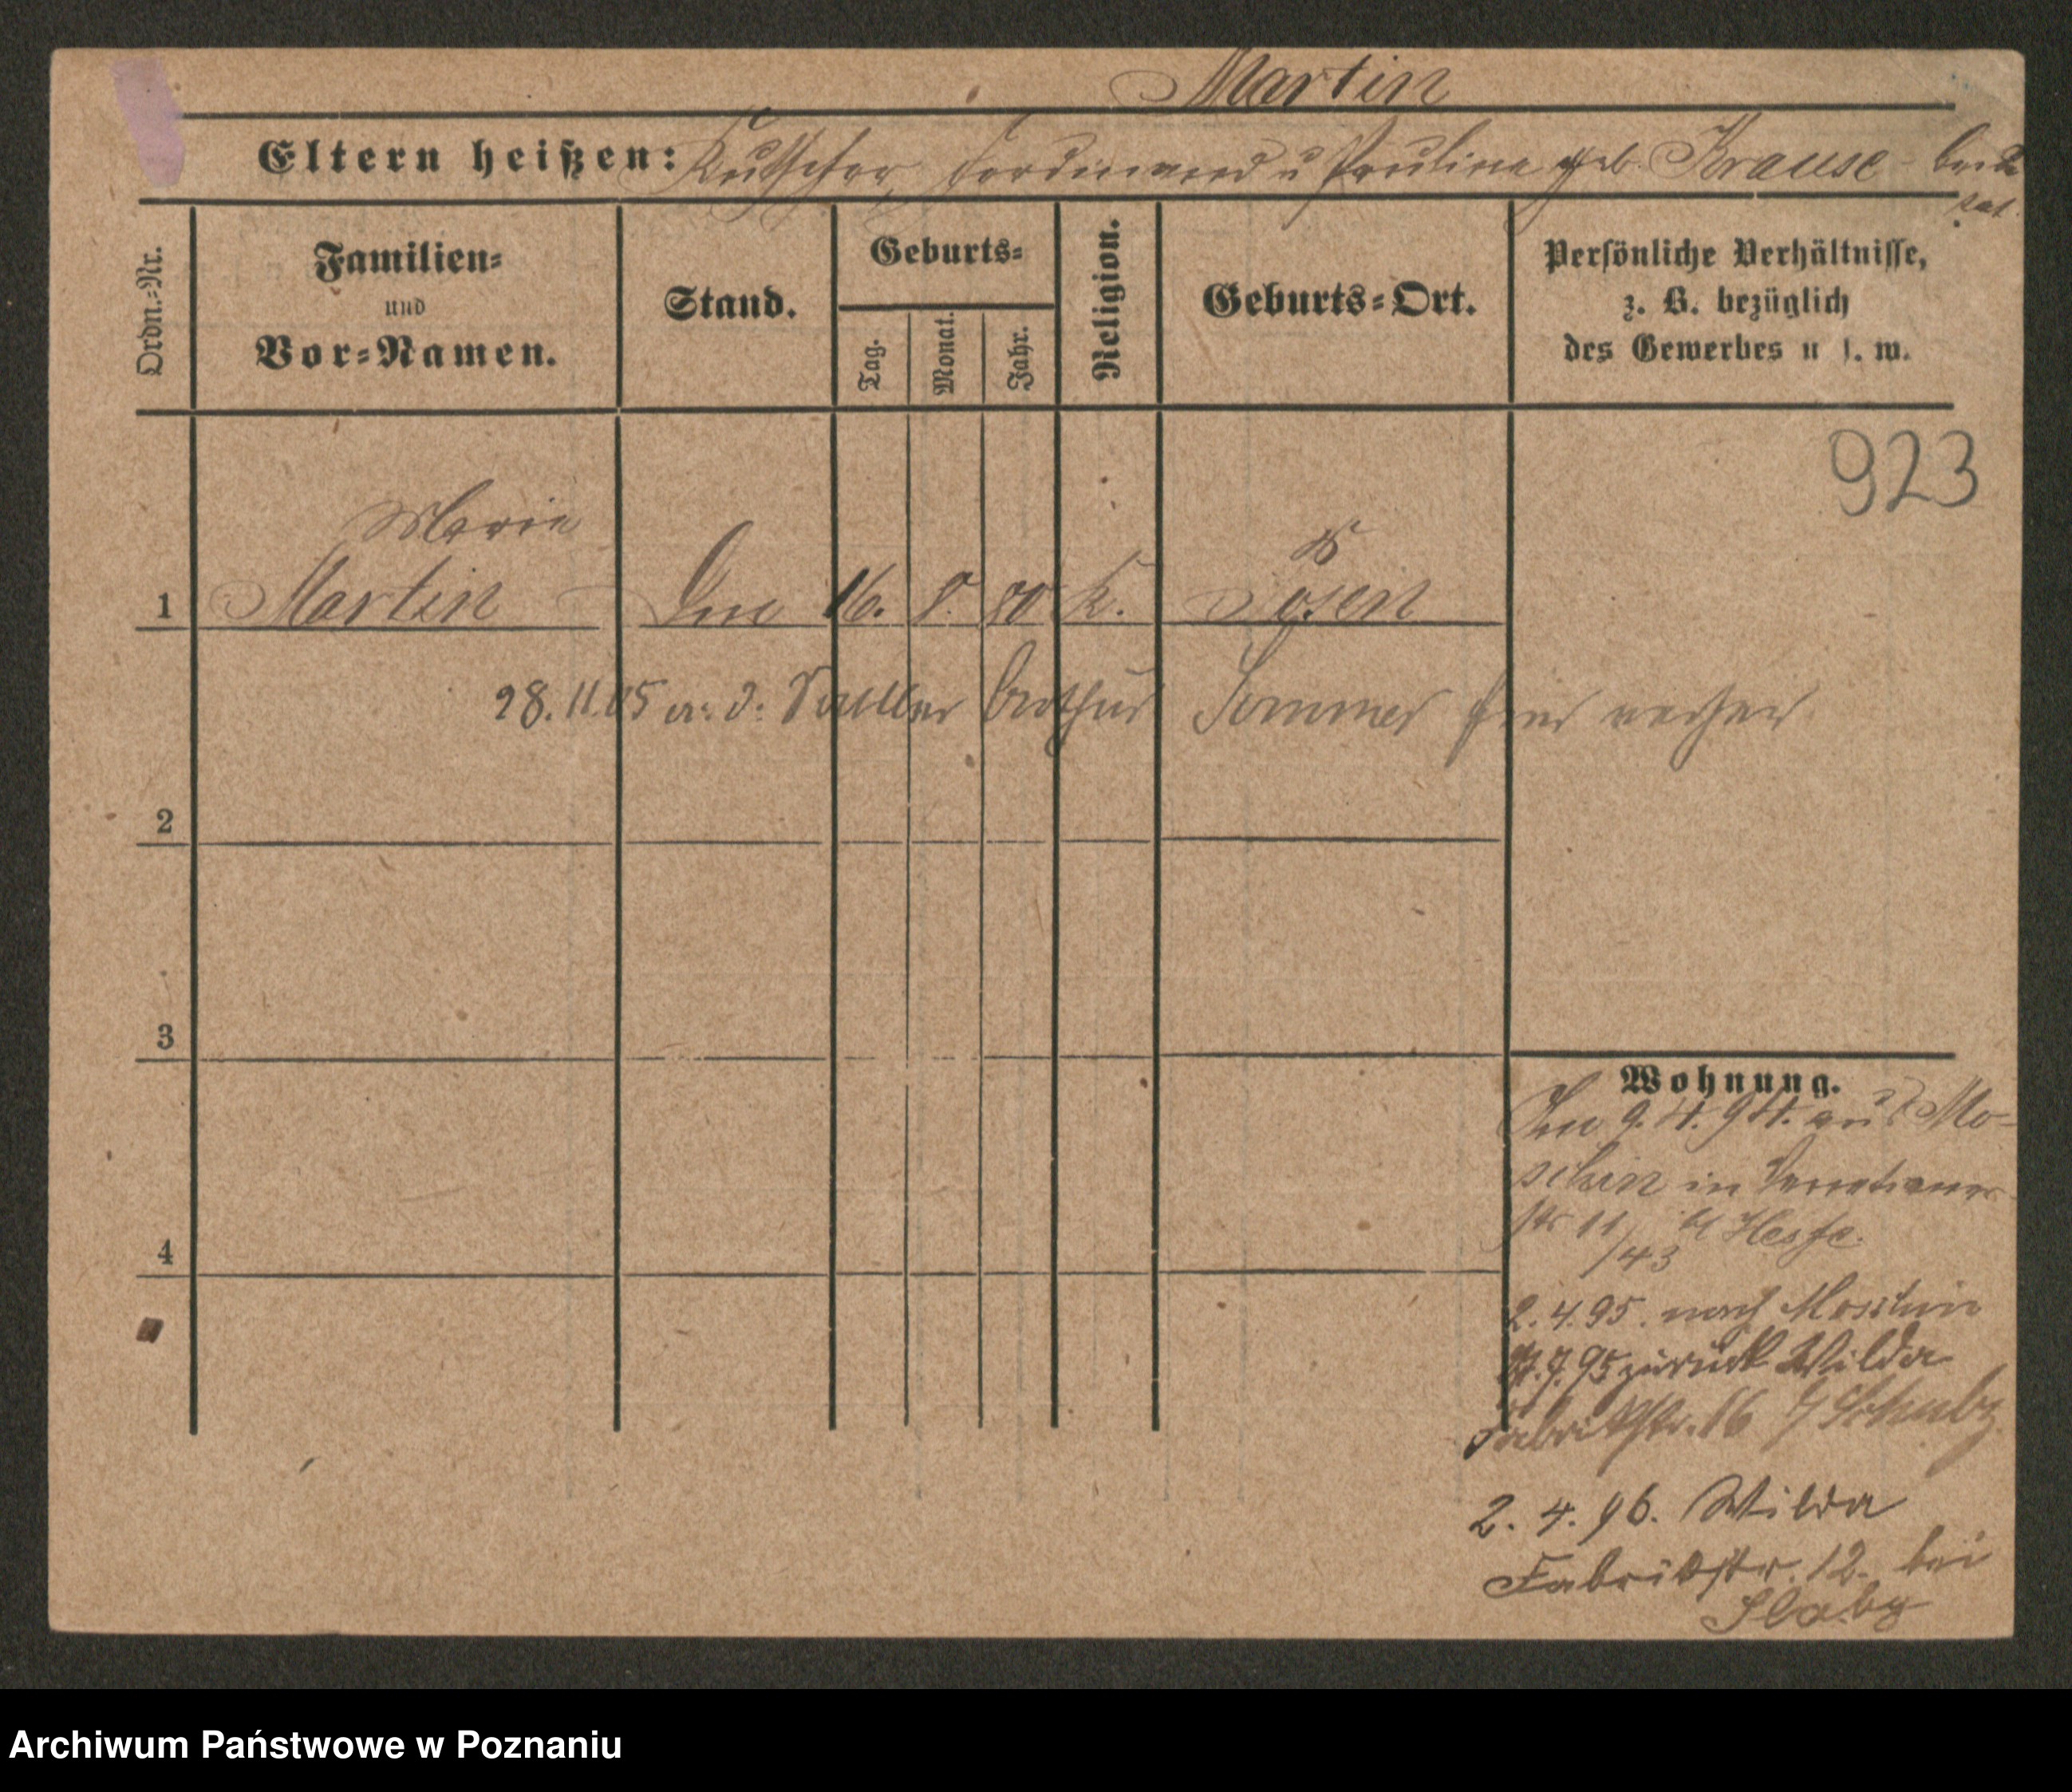 Martin
Eltern heißen: Kutscher, Ferdinand u Pauline geb. Krause - beide
kat.
Ordn.-Nr.
Familien-
und
Vor-Namen.
Stand.
Geburts-
Tag.
Monat.
Jahr.
Religion.
Geburts-Ort.
Persönliche Verhältnisse,
z. B. bezüglich
des Gewerbes u s. w.
923
Marie
P
1 Martin 16. 8. 80 K. Posen
28. 11. 05 a. d. Arthur Sommer hier verh
2
3
4
Wohnung.
9. 4. 94. aus Mo-
schin in
str 11/43 bei Hesse.
2. 4. 95. nach Moschin
7. 95 zurück Wilda
Fabrikstr. 16 Schulz
2. 4. 96. Wilda
Fabrikstr. 12. bei
Slaby
Archiwum Państwowe w Poznaniu